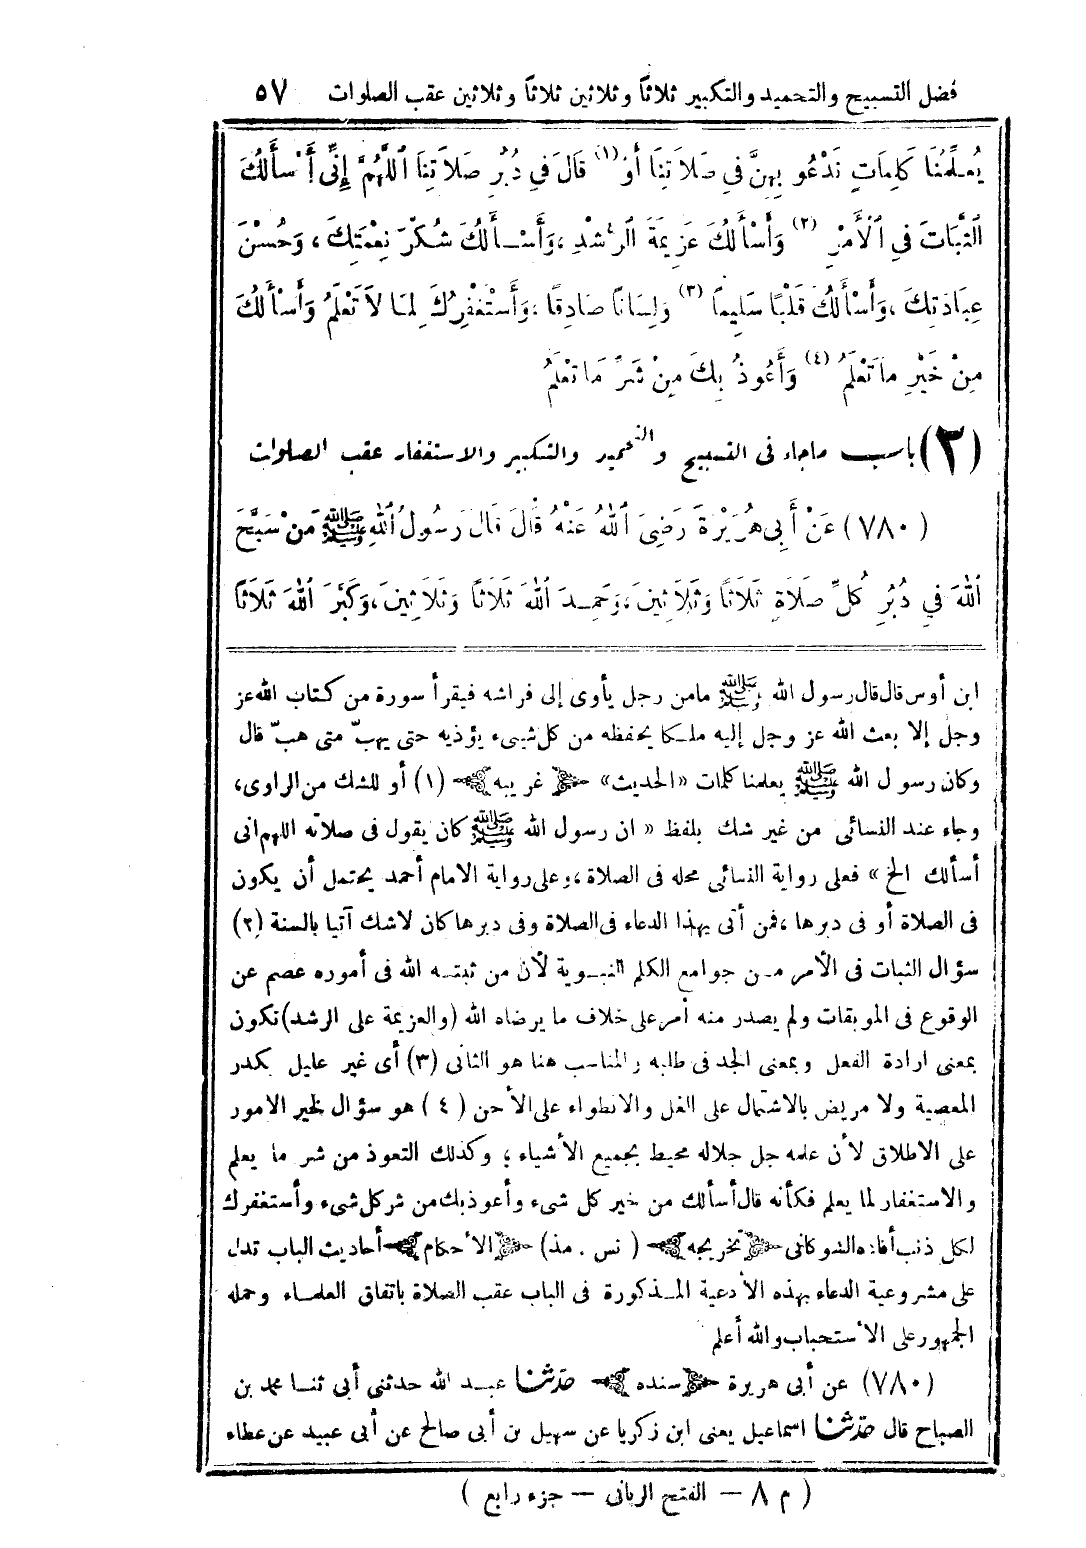 فضل التسبيح والتحميد والتكبير ثلاثاً وثلاثين ثلاثاً وثلاثين عقب الصلوات ٥٧
يُعَلِّمُنَا كَلِمَاتٍ نَدْعُو بِهِنَّ فِي صَلَاتِنَا أَوْ (١) قَالَ فِي دُبُرِ صَلَاتِنَا اَللَّهُمَّ إِنِّي أَسْأَلُكَ
الثَّبَاتَ فِي اَلْأَمْرِ (٢) وَأَسْأَلُكَ عَزِيمَةَ الرُّشْدِ ، وَأَسْأَلُكَ شُكْرَ نِعْمَتِكَ ، وَحُسْنَ
عِبَادَتِكَ ، وَأَسْأَلُكَ قَلْبًا سَلِيمًا (٣) وَلِسَانًا صَادِقًا ، وَأَسْتَغْفِرُكَ لِمَا لَا تَعْلَمُ وَأَسْأَلُكَ
مِنْ خَيْرِ مَا تَعْلَمُ (٤) وَأَعُوذُ بِكَ مِنْ شَرِّ مَا تَعْلَمُ
(٣) باب ماجاء فى التسبيح والتحميد والتكبير والاستغفار عقب الصلوات
(٧٨٠) عَنْ أَبِي هُرَيْرَةَ رَضِيَ اَللهُ عَنْهُ قَالَ قَالَ رَسُولُ اَللهِ ﷺ مَنْ سَبَّحَ
اَللهَ فِي دُبُرِ كُلِّ صَلَاةٍ ثَلَاثًا وَثَلَاثِينَ ، وَحَمِدَ اَللهَ ثَلَاثًا وَثَلَاثِينَ ، وَكَبَّرَ اَللهَ ثَلَاثًا
ابن أوس قال قال رسول الله ﷺ مامن رجل يأوى إلى فراشه فيقرأ سورة من كتاب الله عز
وجل إلا بعث الله عز وجل إليه ملكا يحفظه من كل شيء يؤذيه حتى يهبّ متى هبّ قال
وكان رسول الله ﷺ يعلمنا كلمات «الحديث» ﴿غريبه﴾ (١) أو للشك من الراوى ،
وجاء عند النسائى من غير شك بلفظ « ان رسول الله ﷺ كان يقول فى صلاته اللهم انى
أسألك الخ » فعلى رواية النسائى محله فى الصلاة ، وعلى رواية الامام أحمد يحتمل أن يكون
فى الصلاة أو فى دبرها ، فمن أتى بهذا الدعاء فى الصلاة وفى دبرها كان لاشك آتيا بالسنة (٢)
سؤال الثبات فى الأمر من جوامع الكلم النبوية لأن من ثبته الله فى أموره عصم عن
الوقوع فى الموبقات ولم يصدر منه أمر على خلاف ما يرضاه الله (والعزيمة على الرشد) تكون
بمعنى ارادة الفعل وبمعنى الجد فى طلبه والمناسب هنا هو الثانى (٣) أى غير عليل بكدر
المعصية ولا مريض بالاشتمال على الغل والانطواء على الأحن (٤) هو سؤال لخير الامور
على الاطلاق لأن علمه جل جلاله محيط بجميع الأشياء ؛ وكذلك التعوذ من شر ما يعلم
والاستغفار لما يعلم فكأنه قال أسألك من خير كل شىء وأعوذ بك من شر كل شىء وأستغفرك
لكل ذنب أفاده الشوكانى ﴿تخريجه﴾ ( نس . مذ) ﴿الأحكام﴾ أحاديث الباب تدل
على مشروعية الدعاء بهذه الأدعية المذكورة فى الباب عقب الصلاة باتفاق العلماء وحمله
الجمهور على الأستحباب والله أعلم
(٧٨٠) عن أبى هريرة ﴿سنده﴾ حدّثنا عبد الله حدثنى أبى ثنا محمد بن
الصباح قال حدّثنا اسماعيل يعنى ابن زكريا عن سهيل بن أبى صالح عن أبى عبيد عن عطاء
( م ٨ — الفتح الربانى — جزء رابع )